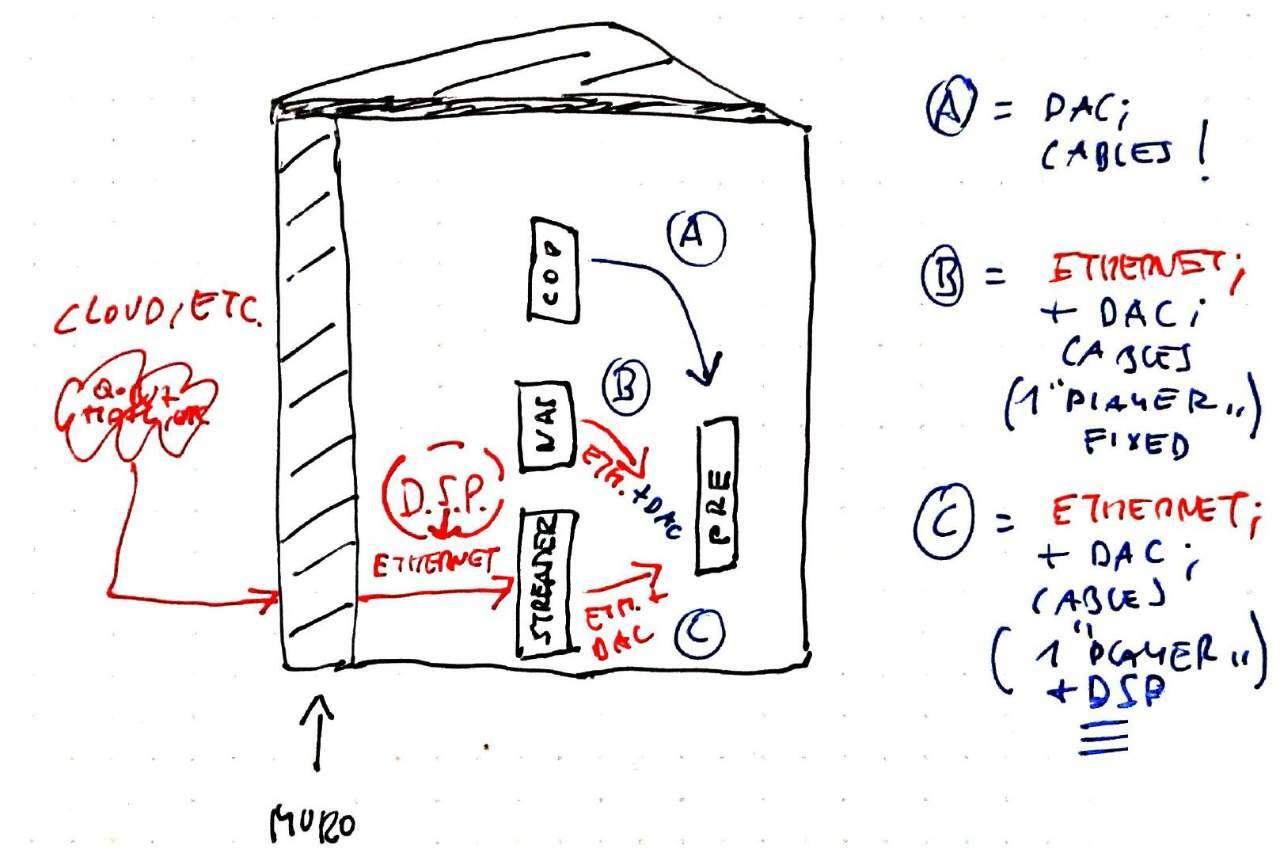 CLOUD, ETC.
D.S.P.
ETHERNET
CDP
A
NAS
B
ETH. + DAC
STREAMER
ETH. +
DAC
C
PRE
MURO
A = DAC;
CABLES!
B = ETHERNET;
+ DAC;
CABLES
(1 "PLAYER„)
FIXED
C = ETHERNET;
+ DAC;
CABLES
(1 "PLAYER„)
+ DSP